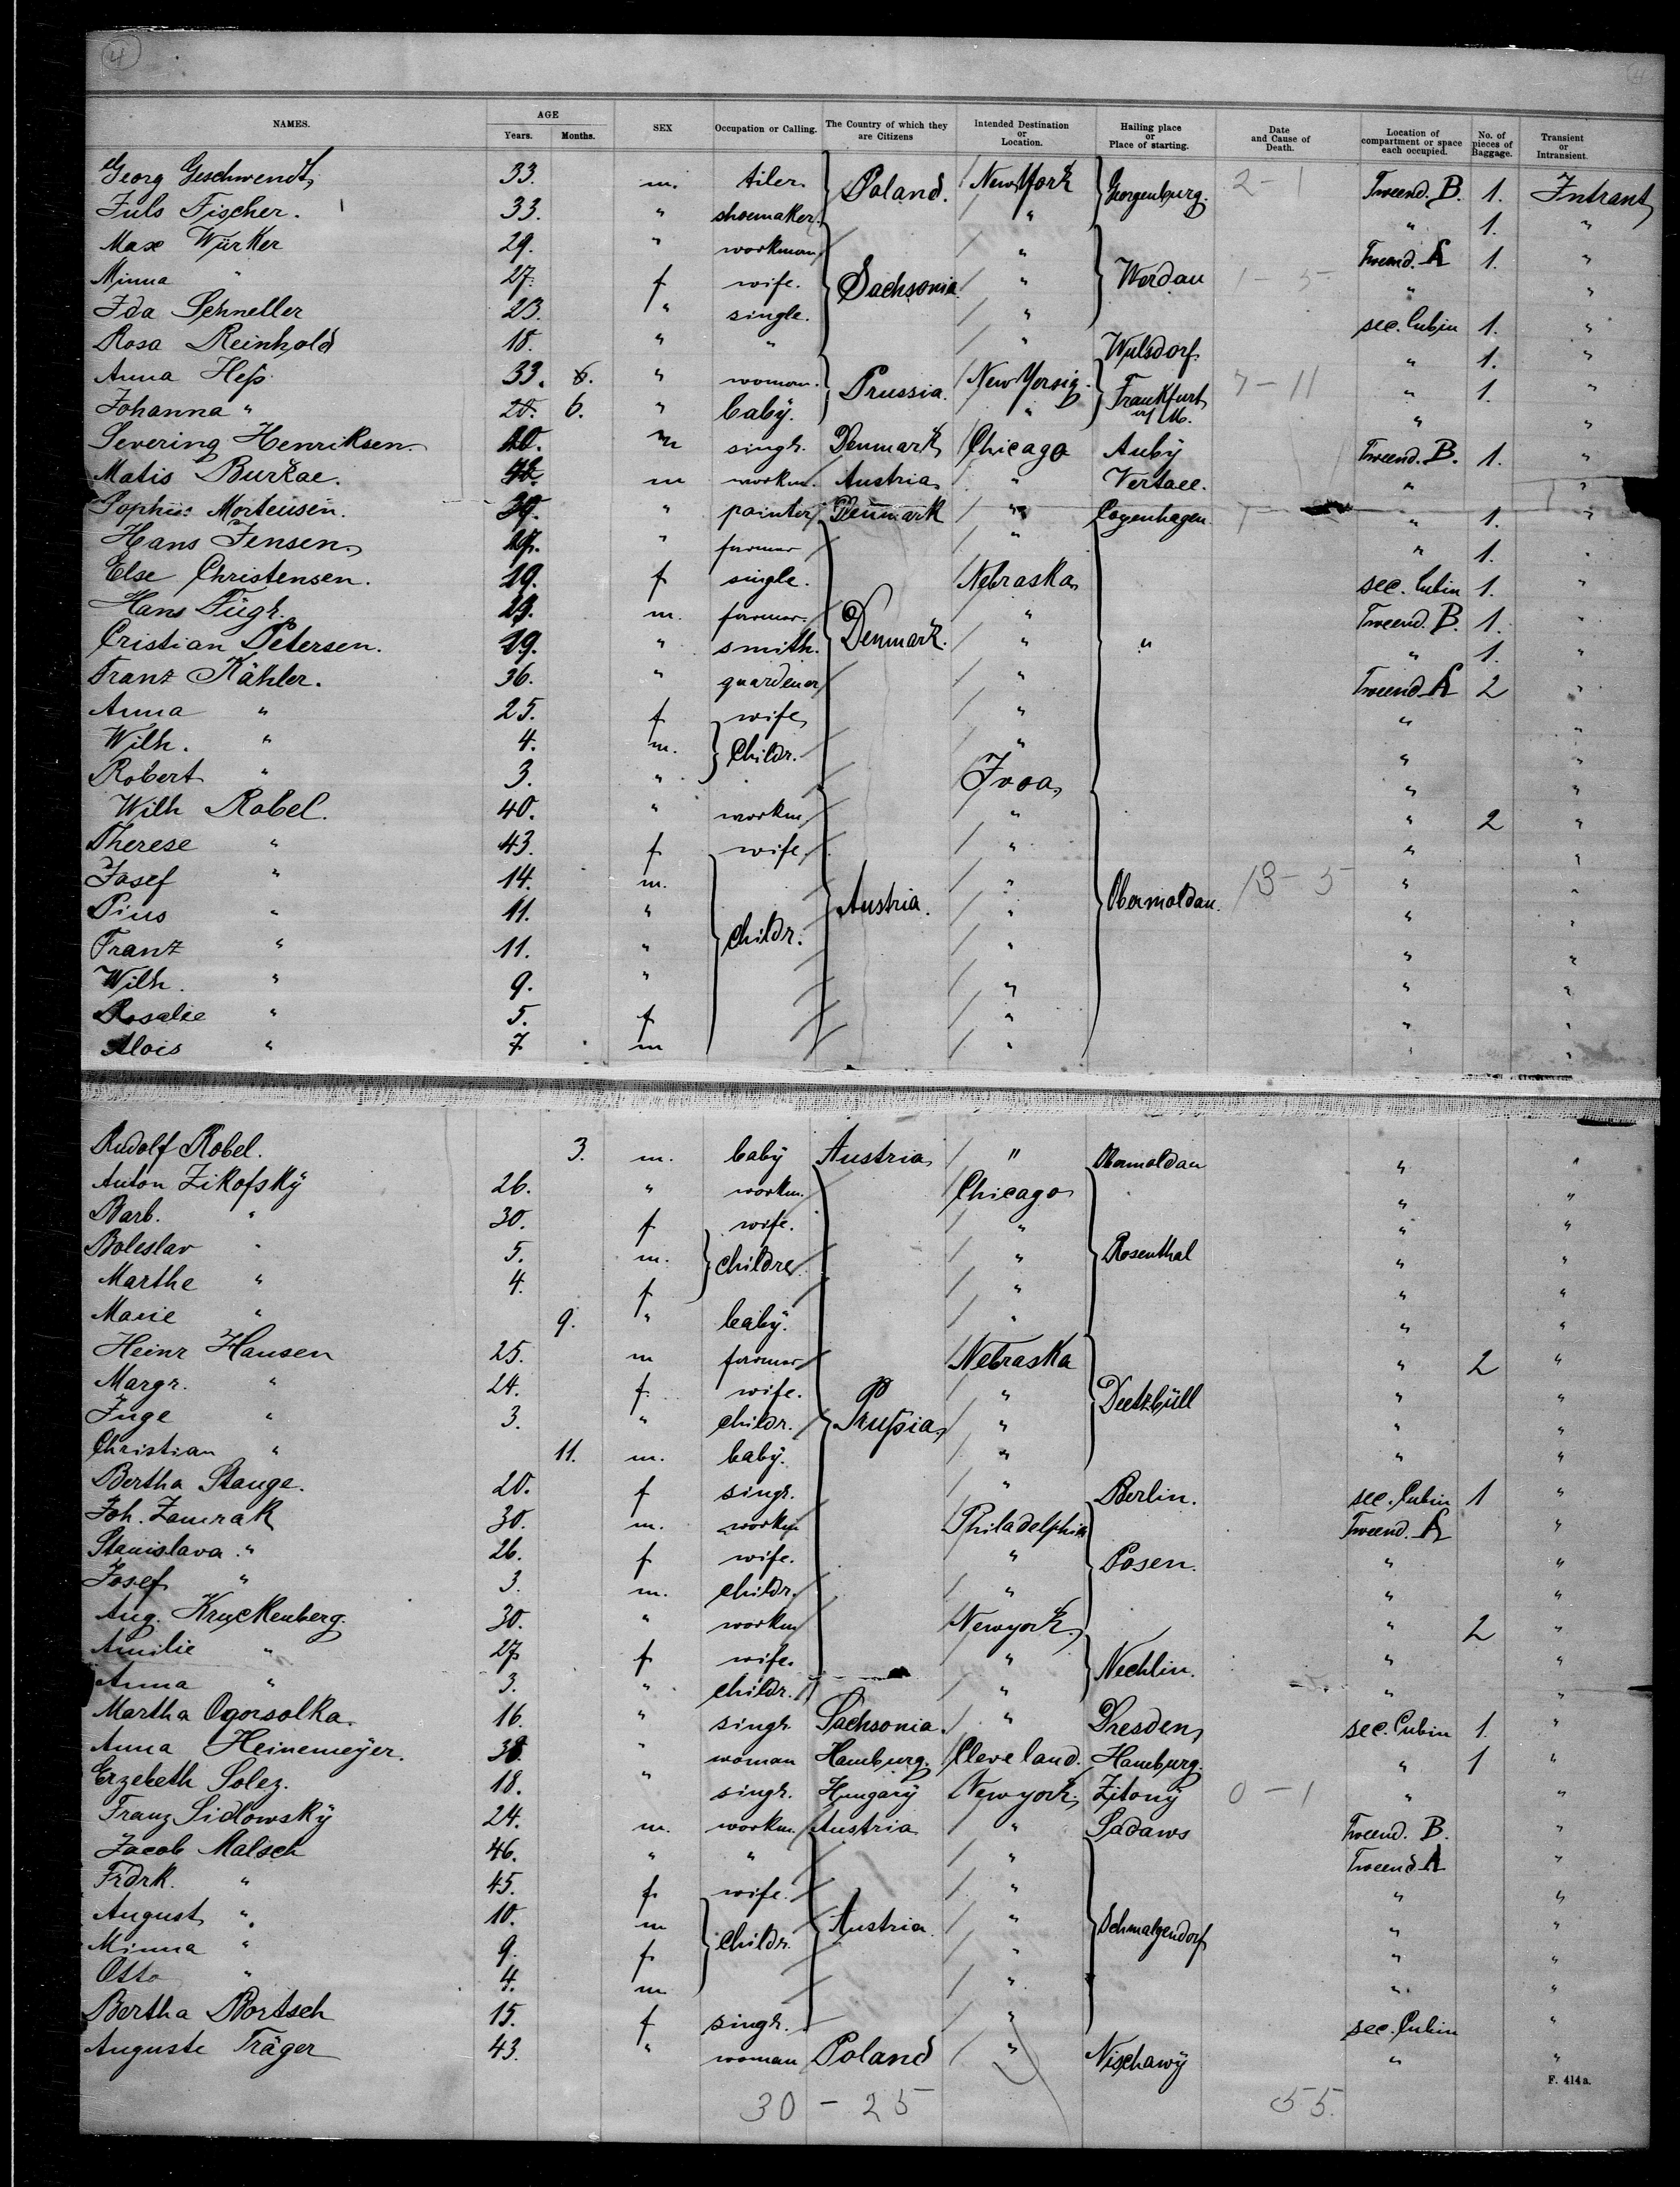 4 4
NAMES. AGE Years. Months. SEX Occupation or Calling. The Country of which they are Citizens Intended Destination or Location. Hailing place or Place of starting. Date and Cause of Death. Location of compartment or space each occupied. No. of pieces of Baggage. Transient or Intransient.
Georg Geschwendt 33. m. tiler } Poland. New York } Georgenburg. 2-1 Tweend. B. 1. Intrant
Juls Fischer. 33. " shoemaker. " " 1. "
Max Würker 29. " workman } Sachsonia " } Werdau 1-5 Tweend. A 1. "
Minna " 27. f wife. " " "
Ida Schneller 23. " single. " sec. Cubin 1. "
Rosa Reinhold 18. " " " Wulsdorf. " 1. "
Anna Heß 33. " woman. } Prussia. New } Frankfurt a/M. 7-11 " 1. "
Johanna " 6. " baby. " " "
Severing Henriksen. 20. m singl. Denmark Chicago Auby Tweend. B. 1. "
Matis Burkae. m workm. Austria " " "
Sophus Mortensen. 39. " painter Denmark " Copenhagen " 1. "
Hans Jensen. " farmer } Denmark. " } " " 1. "
Else Christensen. 19. f single. Nebraska sec. Cubin 1. "
Hans 29. m. farmer. " Tweend. B. 1. "
Cristian Petersen. 19. " smith. " " 1. "
Franz Kähler. 36. " guardener " Tweend. A 2 "
Anna " 25. f wife " " "
Wilh. " 4. m. } Childr. " " "
Robert " 3. " Iova " "
Wilh Robel. 40. " workm } Austria. " } Obermoldau. 13-5 " 2 "
Therese " 43. f wife " " "
Josef " 14. m. } Childr. " " "
Pius " 11. " " " "
Franz " 11. " " " "
Wilh. " 9. " " " "
Rosalie " 5. f " " "
Alois " 7 m " " "
Rudolf Robel. 3. m. baby Austria " Obermoldau " "
Anton Zikofsky 26. " workm. } Prussia Chicago } Rosenthal " "
Barb. " 30. f wife. " " "
Boleslav " 5. m. } Childre " " "
Marthe " 4. f " " "
Marie " 9. " baby. " " "
Heinr Hansen 25. m farmer Nebraska } Deetzbüll " 2 "
Margr. " 24. f. wife. " " "
Inge " 3. " Childr. " " "
Christian " 11. m. baby. " " "
Bertha Stange. 20. f singl. " Berlin. sec. Cubin 1 "
Joh. Zamrak 30. m. workm Philadelphia } Posen. Tweend. A "
Stanislava " 26. f wife. " " "
Josef " 3. m. Childr. " " "
Aug. Kruckenberg. 30. " workm Newyork. } Nechlin. " 2 "
Amilie " 27 f wife. " " "
Anna " 3. " Childr. " " "
Martha Ogorsolka. 16. " singl. Sachsonia. " Dresden sec. Cubin 1. "
Anna Heinemeyer. 38. " woman Hamburg. Cleveland. Hamburg. " 1 "
Erzebeth Solez. 18. " singl. Hungary Newyork. Zitony 0-1 " "
Franz Sidlowsky 24. m. workm. Austria " Sadaws Tweend. B. "
Jacob Malsch 46. " " } Austria. " } Schmalzendorf Tweend. A "
Frdrk. " 45. f. wife. " " "
August " 10. m } Childr. " " "
Minna " 9. f. " " "
Otto " 4. m " " "
Bertha Bortsch 15. f singl. " sec. Cubin "
Auguste Träger 43. " woman Poland " Nischawy " "
F. 414a.
30 - 25 55.